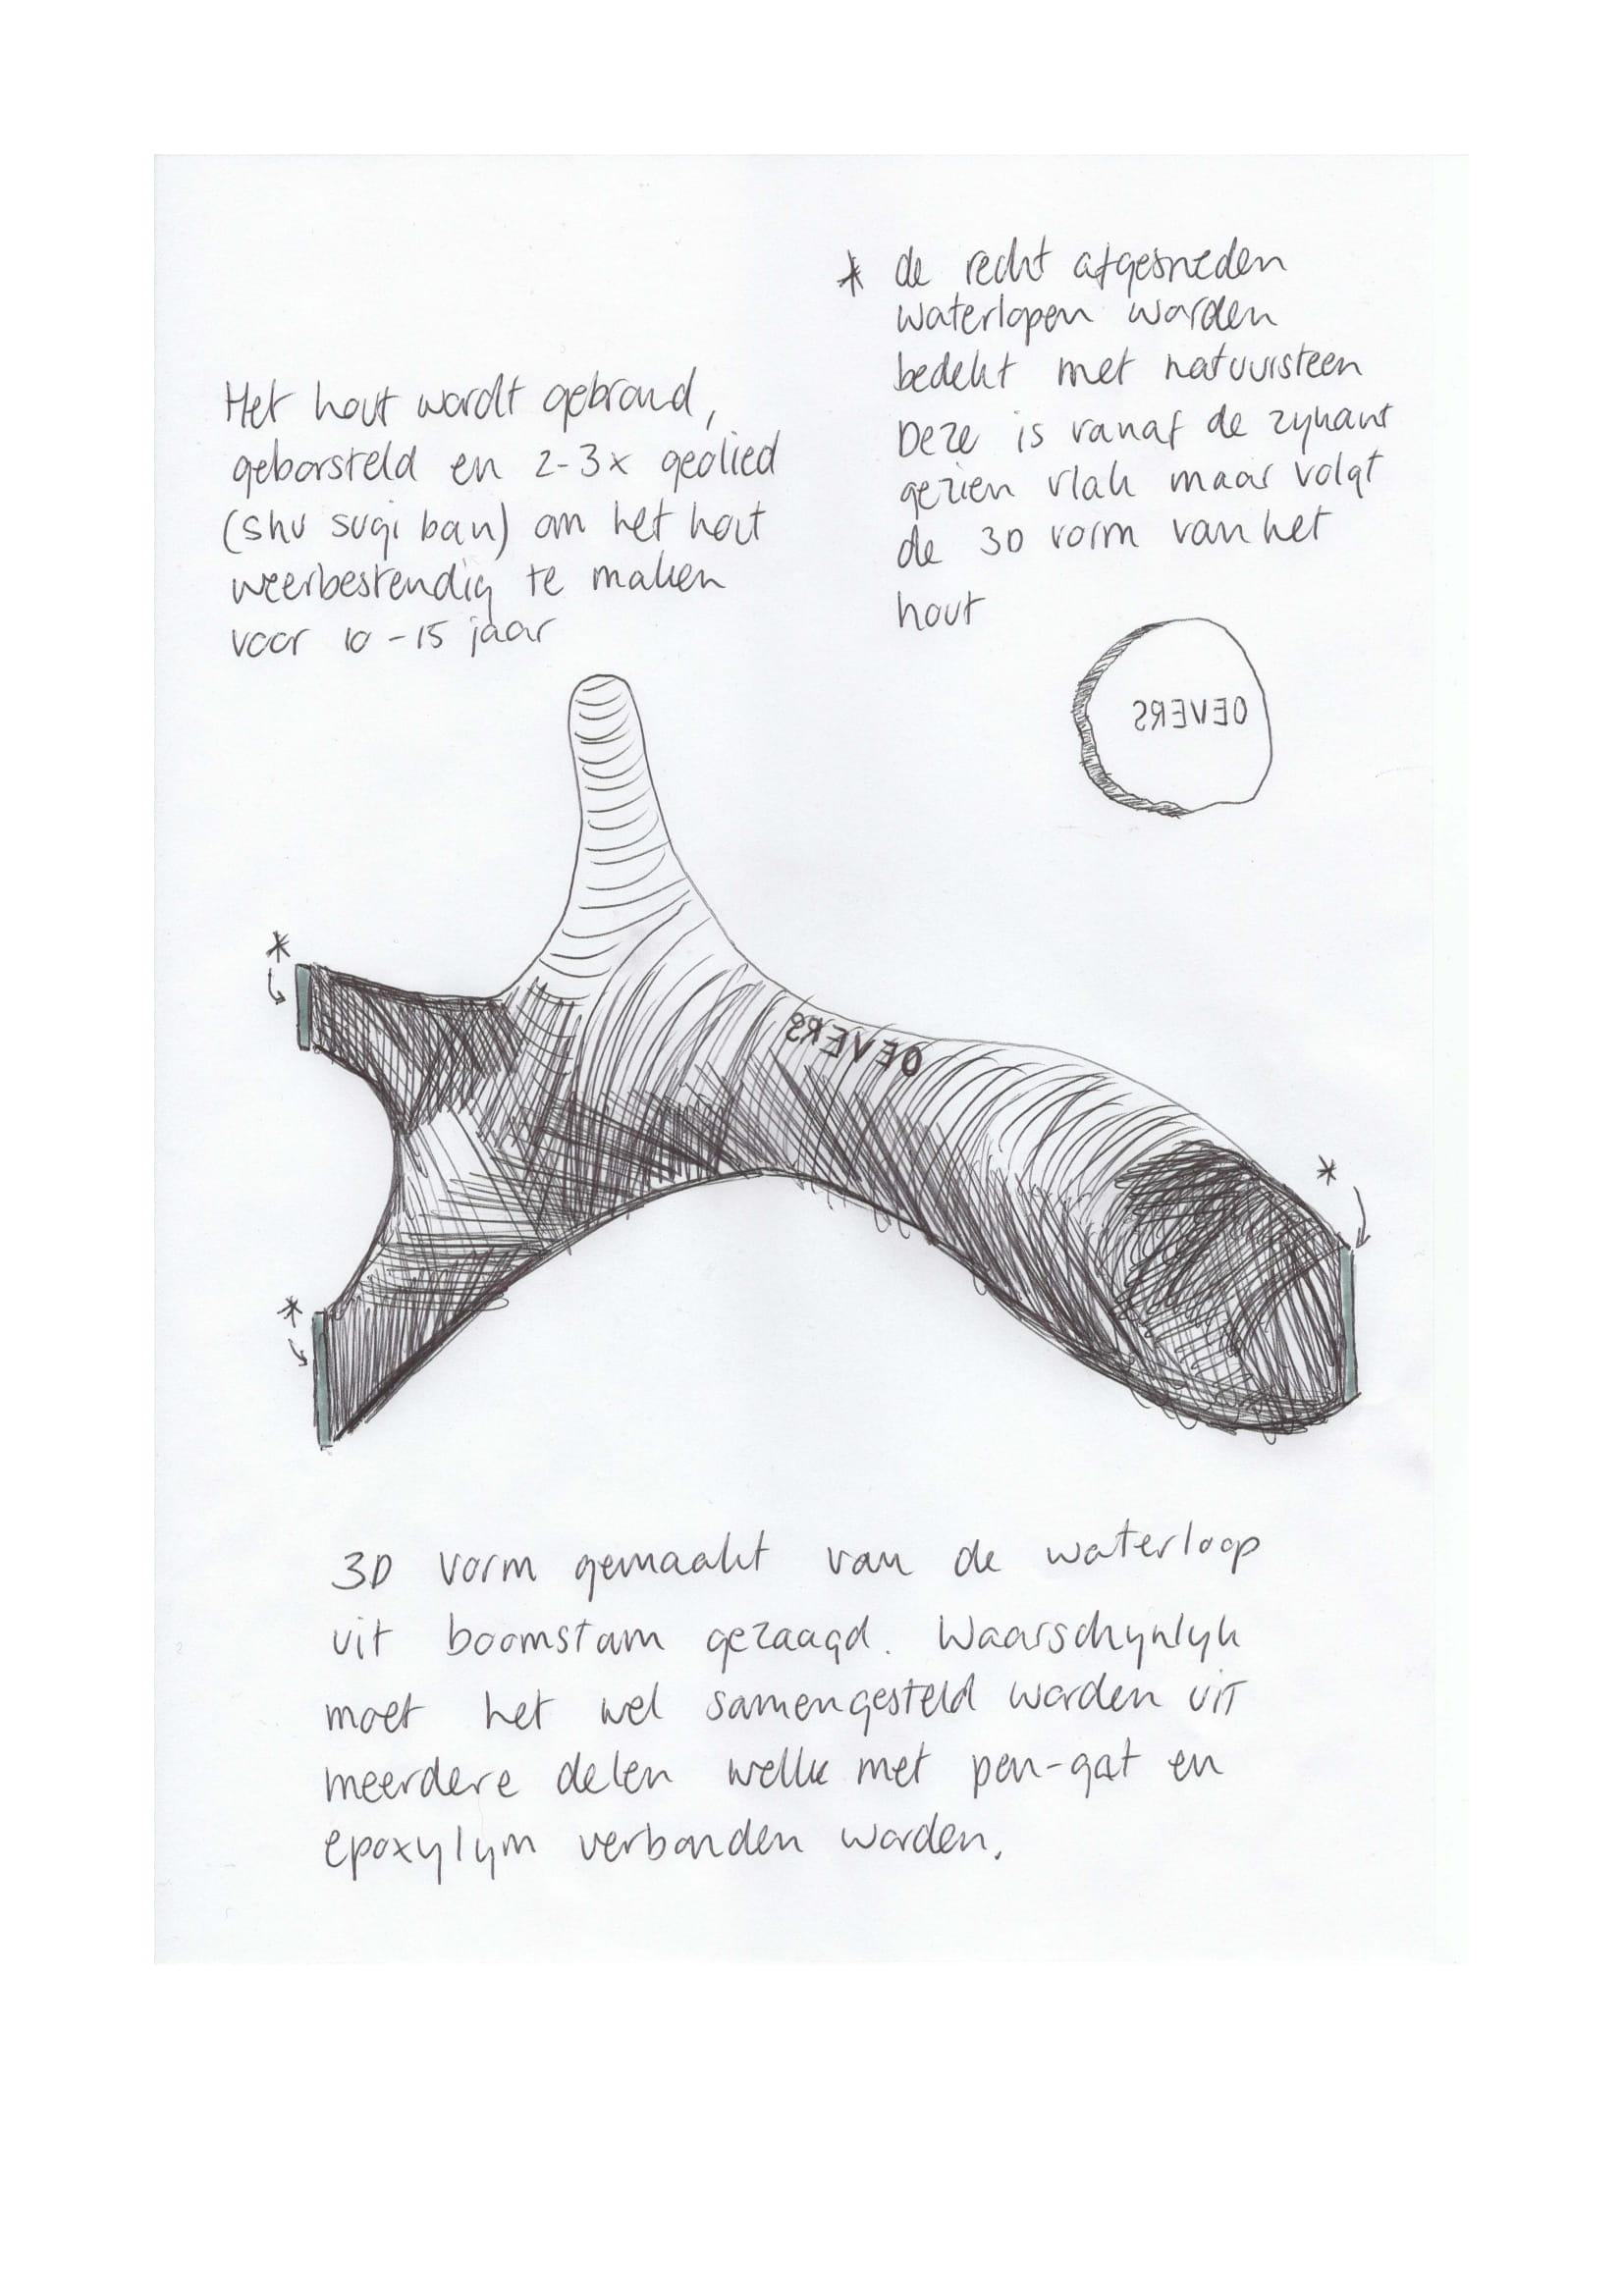 Het hout wordt gebrand,
geborsteld en 2-3x geolied
(shu sugi ban) om het hout
weerbestendig te maken
voor 10-15 jaar
* de recht afgesneden
waterlopen worden
bedekt met natuursteen
Deze is vanaf de zykant
gezien vlak maar volgt
de 3D vorm van het
hout
OEVERS
*
OEVERS
*
*
3D vorm gemaakt van de waterloop
uit boomstam gezaagd. Waarschynlyk
moet het wel samengesteld worden uit
meerdere delen welke met pen-gat en
epoxylym verbonden worden.